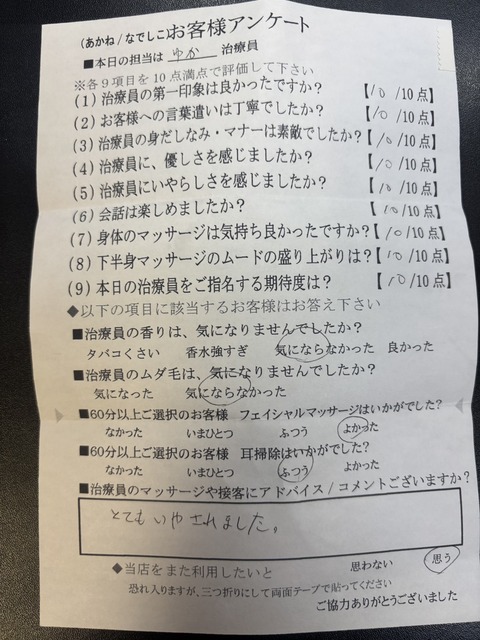 (あかね/なでしこ)お客様アンケート
■本日の担当は ゆか 治療員
※各９項目を10点満点で評価して下さい
(1) 治療員の第一印象は良かったですか？【10/10点】
(2) お客様への言葉遣いは丁寧でしたか？【10/10点】
(3) 治療員の身だしなみ・マナーは素敵でしたか？【10/10点】
(4) 治療員に、優しさを感じましたか？【10/10点】
(5) 治療員にいやらしさを感じましたか？【10/10点】
(6) 会話は楽しめましたか？【10/10点】
(7) 身体のマッサージは気持ち良かったですか？【10/10点】
(8) 下半身マッサージのムードの盛り上がりは？【10/10点】
(9) 本日の治療員をご指名する期待度は？【10/10点】
◆以下の項目に該当するお客様はお答え下さい
■治療員の香りは、気になりませんでしたか？
タバコくさい 香水強すぎ 気にならなかった 良かった
■治療員のムダ毛は、気になりませんでしたか？
気になった 気にならなかった
■60分以上ご選択のお客様 フェイシャルマッサージはいかがでした？
なかった いまひとつ ふつう よかった
■60分以上ご選択のお客様 耳掃除はいかがでした？
なかった いまひとつ ふつう よかった
■治療員のマッサージや接客にアドバイス/コメントございますか？
とてもいやされました。
◆当店をまた利用したいと 思わない 思う
恐れ入りますが、三つ折りにして両面テープで貼ってください
ご協力ありがとうございました